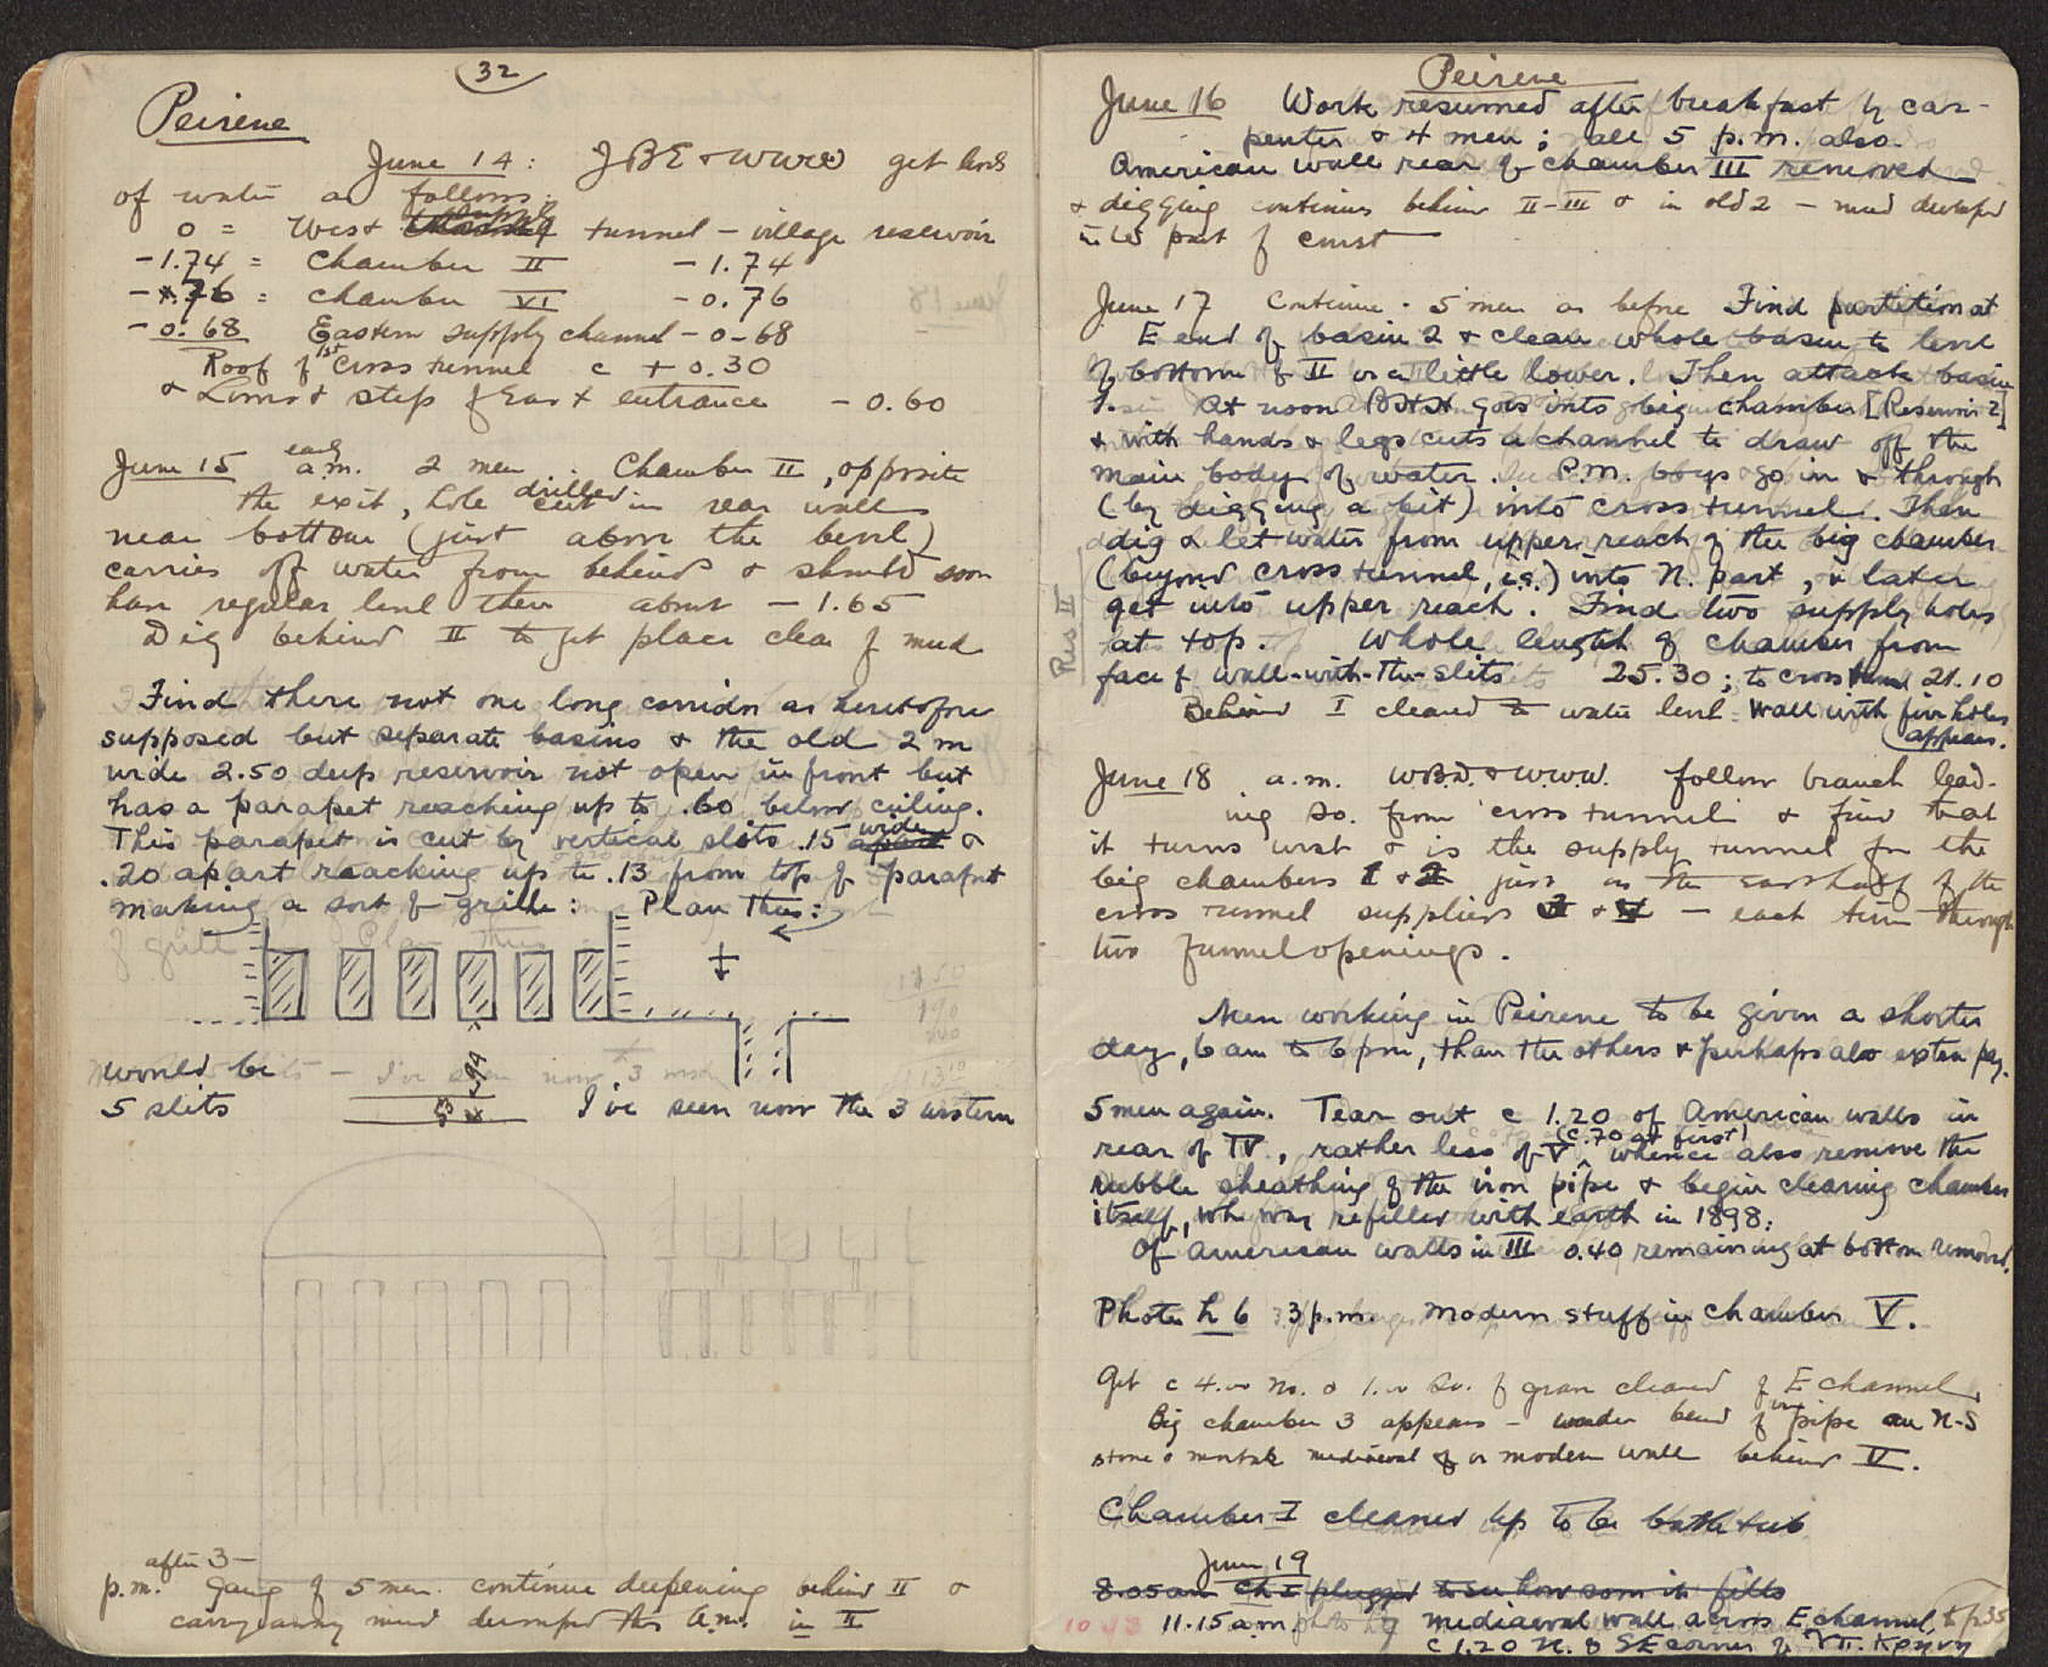 32
Peirene
June 14: JBE + WWW get levels
of water as follows:
0 = West supply tunnel – village reservoir
-1.74 = Chamber II -1.74
-.76 = Chamber VI -0.76
-0.68 Eastern supply channel -0.68
Roof of 1st cross tunnel c +0.30
& Lowest step of East entrance -0.60
June 15 early a.m. 2 men. Chamber II, opposite
the exit, hole drilled in rear wall
near bottom (just above the bevel)
carries off water from behind & should soon
have regular level there about -1.65
Dig behind II to get place clear of mud
Find there not one long corridor as heretofore
supposed but separate basins & the old 2 m
wide 2.50 deep reservoir not open in front but
has a parapet reaching up to .60 below ceiling.
This parapet is cut by vertical slits .15 wide &
.20 apart reaching up to .13 from top of parapet
making a sort of grille: Plan thus:
would be
5 slits
I've seen now the 3 western
p.m. after 3– Gang of 5 men continue deepening behind II &
carry away mud dumped this a.m. in II
Peirene
June 16 Work resumed after breakfast by car-
penter & 4 men; all 5 p.m. also.
American wall rear of chamber III removed
& digging continues behind II-III & in old 2 – mud dumped
in W part of court
June 17 Continue. 5 men as before Find partition at
E end of basin 2 & clean whole basin to level
of bottom of II or a little lower. Then attack basin
1. At noon BHH goes into big chamber [Reservoir 2]
& with hands & legs cuts a channel to draw off the
main body of water. P.M. boys go in & through
(by digging a bit) into cross tunnel. Then
dig & let water from upper reach of the big chamber
(beyond cross tunnel, i.e.) into N. part, & later
get into upper reach. Find two supply holes
Res II
at top. Whole length of chamber from
face of wall-with-the-slits 25.30; to cross tunnel 21.10
Behind I cleared to water level = wall with five holes
appears.
June 18 a.m. W.B.D. & W.W.W. follow branch lead-
ing So. from cross tunnel & find that
it turns west & is the supply tunnel for the
big chambers 1 & 2 just as the east half of the
cross tunnel supplies & – each time through
two funnel openings.
Men working in Peirene to be given a shorter
day, 6 am to 6 pm, than the others & perhaps also extra pay.
5 men again. Tear out c 1.20 of American walls in
rear of IV, rather less of V (c .70 at first) whence also remove the
rubble sheathing of the iron pipe & begin clearing chamber
itself, wh was refilled with earth in 1898.
Of American walls in III 0.40 remaining at bottom removed.
Photo h 6 3 p.m. Modern stuff in chamber V.
Get c 4.00 No. & 1.00 So. of cleared of E channel
Big chamber 3 appears – under bend of iron pipe an N-S
stone & mortar mediaeval or modern wall behind V.
Chamber I cleaned up to be bath tub
June 19
8.05 am Ch I plugged to see how soon it fills
11.15 a.m. photo mediaeval wall across E channel, to p 35
c 1.20 N. of SE corner of